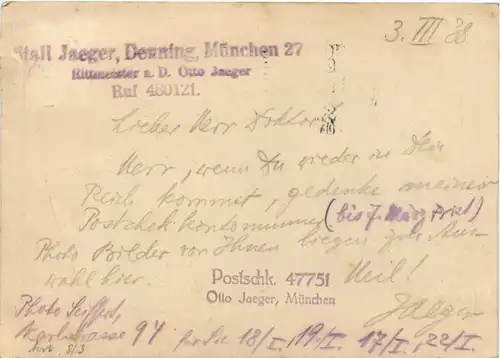 3. III 38
Stall Jaeger, Denning, München 27
Rittmeister a. D. Otto Jaeger
Ruf 480121.
Lieber Herr Doktor!
Herr, wenn Du wieder in Dein
Reich kommst, gedenke meiner
Postschekkontonummer (bis 7. März Frist)
Photo Bilder von Ihnen liegen zur Aus-
wahl hier.
Postschk. 47751
Heil!
Otto Jaeger, München
Jaeger
Photo Seiffert,
94 für Sie 18/I, 19/I 17/I, 22/I
8/3